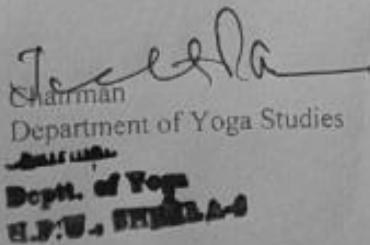 Chairman
Department of Yoga Studies
Deptt. of Yoga
H.P.U., SHIMLA-5